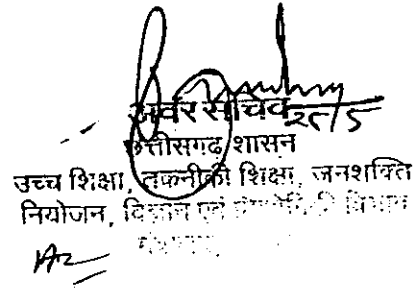 अवर सचिव 25/5
छत्तीसगढ़ शासन
उच्च शिक्षा, तकनीकी शिक्षा, जनशक्ति
नियोजन, विज्ञान एवं विभाग